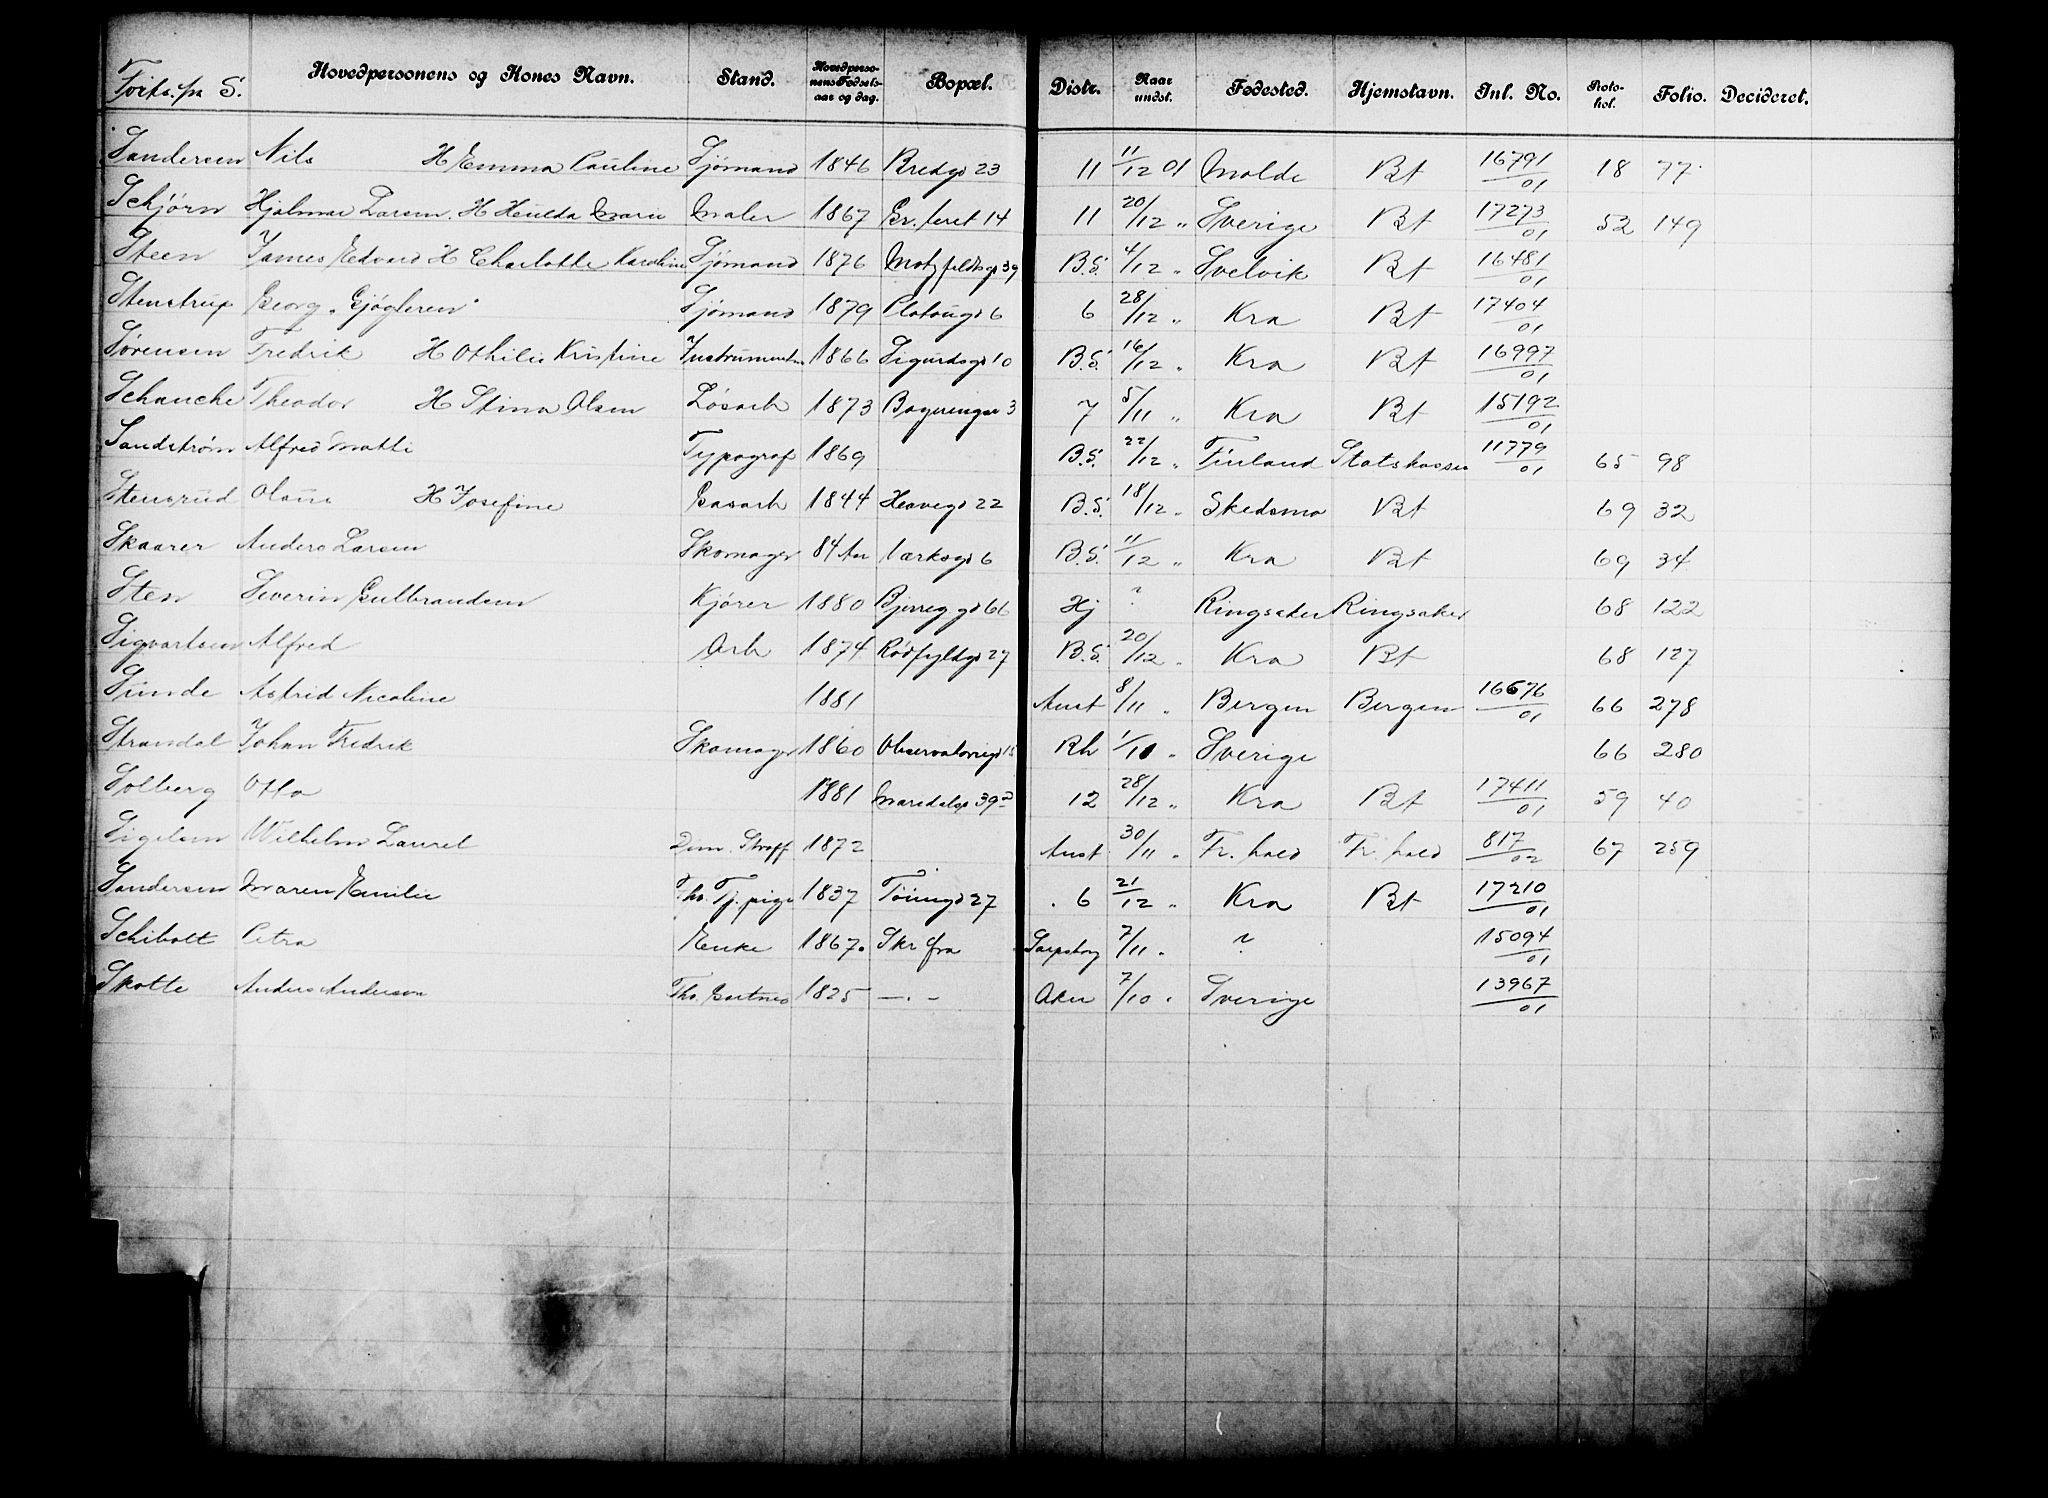 Forts. fra S. Hovedpersonens og Kones Navn. Stand. Hovedperso-nens Fødsels-aar og dag. Bopæl. Distr. Naar undst. Fødested. Hjemstavn. Inl. No. Proto-kol. Folio. Decideret.
Sandersen Nils H Emma Pauline Sjømand 1846 Bredgd 23 11 11/12 01 Molde Bt 16791/01 18 77
Schjørn Hjalmar Larsen H Hulda Marie Maler 1867 Gr. leret 14 11 20/12 " Sverige Bt 17273/01 52 149
Steen James Edvard H Charlotte Karoline Sjømand 1876 Motzfeldtsgd 39 B.S. 4/12 " Svelvik Bt 16481/01
Stenstrup Georg "Gjøgleren" Sjømand 1879 Platougd 6 6 28/12 " Kra Bt 17404/01
Sørensen Fredrik H Othilie Kristine Instrumentm 1866 Sigurdsgd 10 B.S. 16/12 " Kra Bt 16997/01
Schanche Theodor H Stina Olsen Løsarb 1873 3 7 5/11 " Kra Bt 15192/01
Sandstrøm Alfred Matti Typograf 1869 B.S. 22/12 " Finland Statskassen 11779/01 65 98
Stensrud Olaus H Josefine Gasarb 1844 Heovegd 22 B.S. 18/12 " Skedsmo Bt 69 32
Skaarer Anders Larsen Skomager 84 Aar Værksgd 6 B.S. 11/12 " Kra Bt 69 34
Sten Severin Gulbrandsen Kjører 1880 Bjerreg gd 66 Hj ? Ringsaker Ringsaker 68 122
Sigvartsen Alfred Arb 1874 Rødfyldgd 27 B.S. 20/12 " Kra Bt 68 127
Sunde Astrid Nicoline 1881 Anst 8/11 " Bergen Bergen 16676/01 66 278
Strandal Johan Fredrik Skomager 1860 Observatoriegd 15 Rh 1/10 " Sverige 66 280
Solberg Otto 1881 Maridalsgd 39 12 28/12 " Kra Bt 17411/01 59 40
Sigelsen Wilhelm Laurel Dim. Straff 1872 Anst 30/11 " Fr. hald Fr. hald 817/02 67 259
Sandersen Maren Emilie Fhv. Tj. pige 1837 Tøiengd 27 6 21/12 " Kra Bt 17210/01
Schibolt Petra Enke 1867. Skr fra Sarpsborg 7/11 " ? 15094/01
Skotte Anders Anderson Fhv. Gartner 1825 —"— Aker 7/10 " Sverige 13967/01